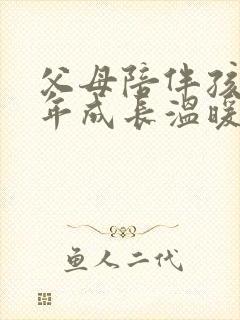 父母陪伴孩
年成长温暖
鱼人二代